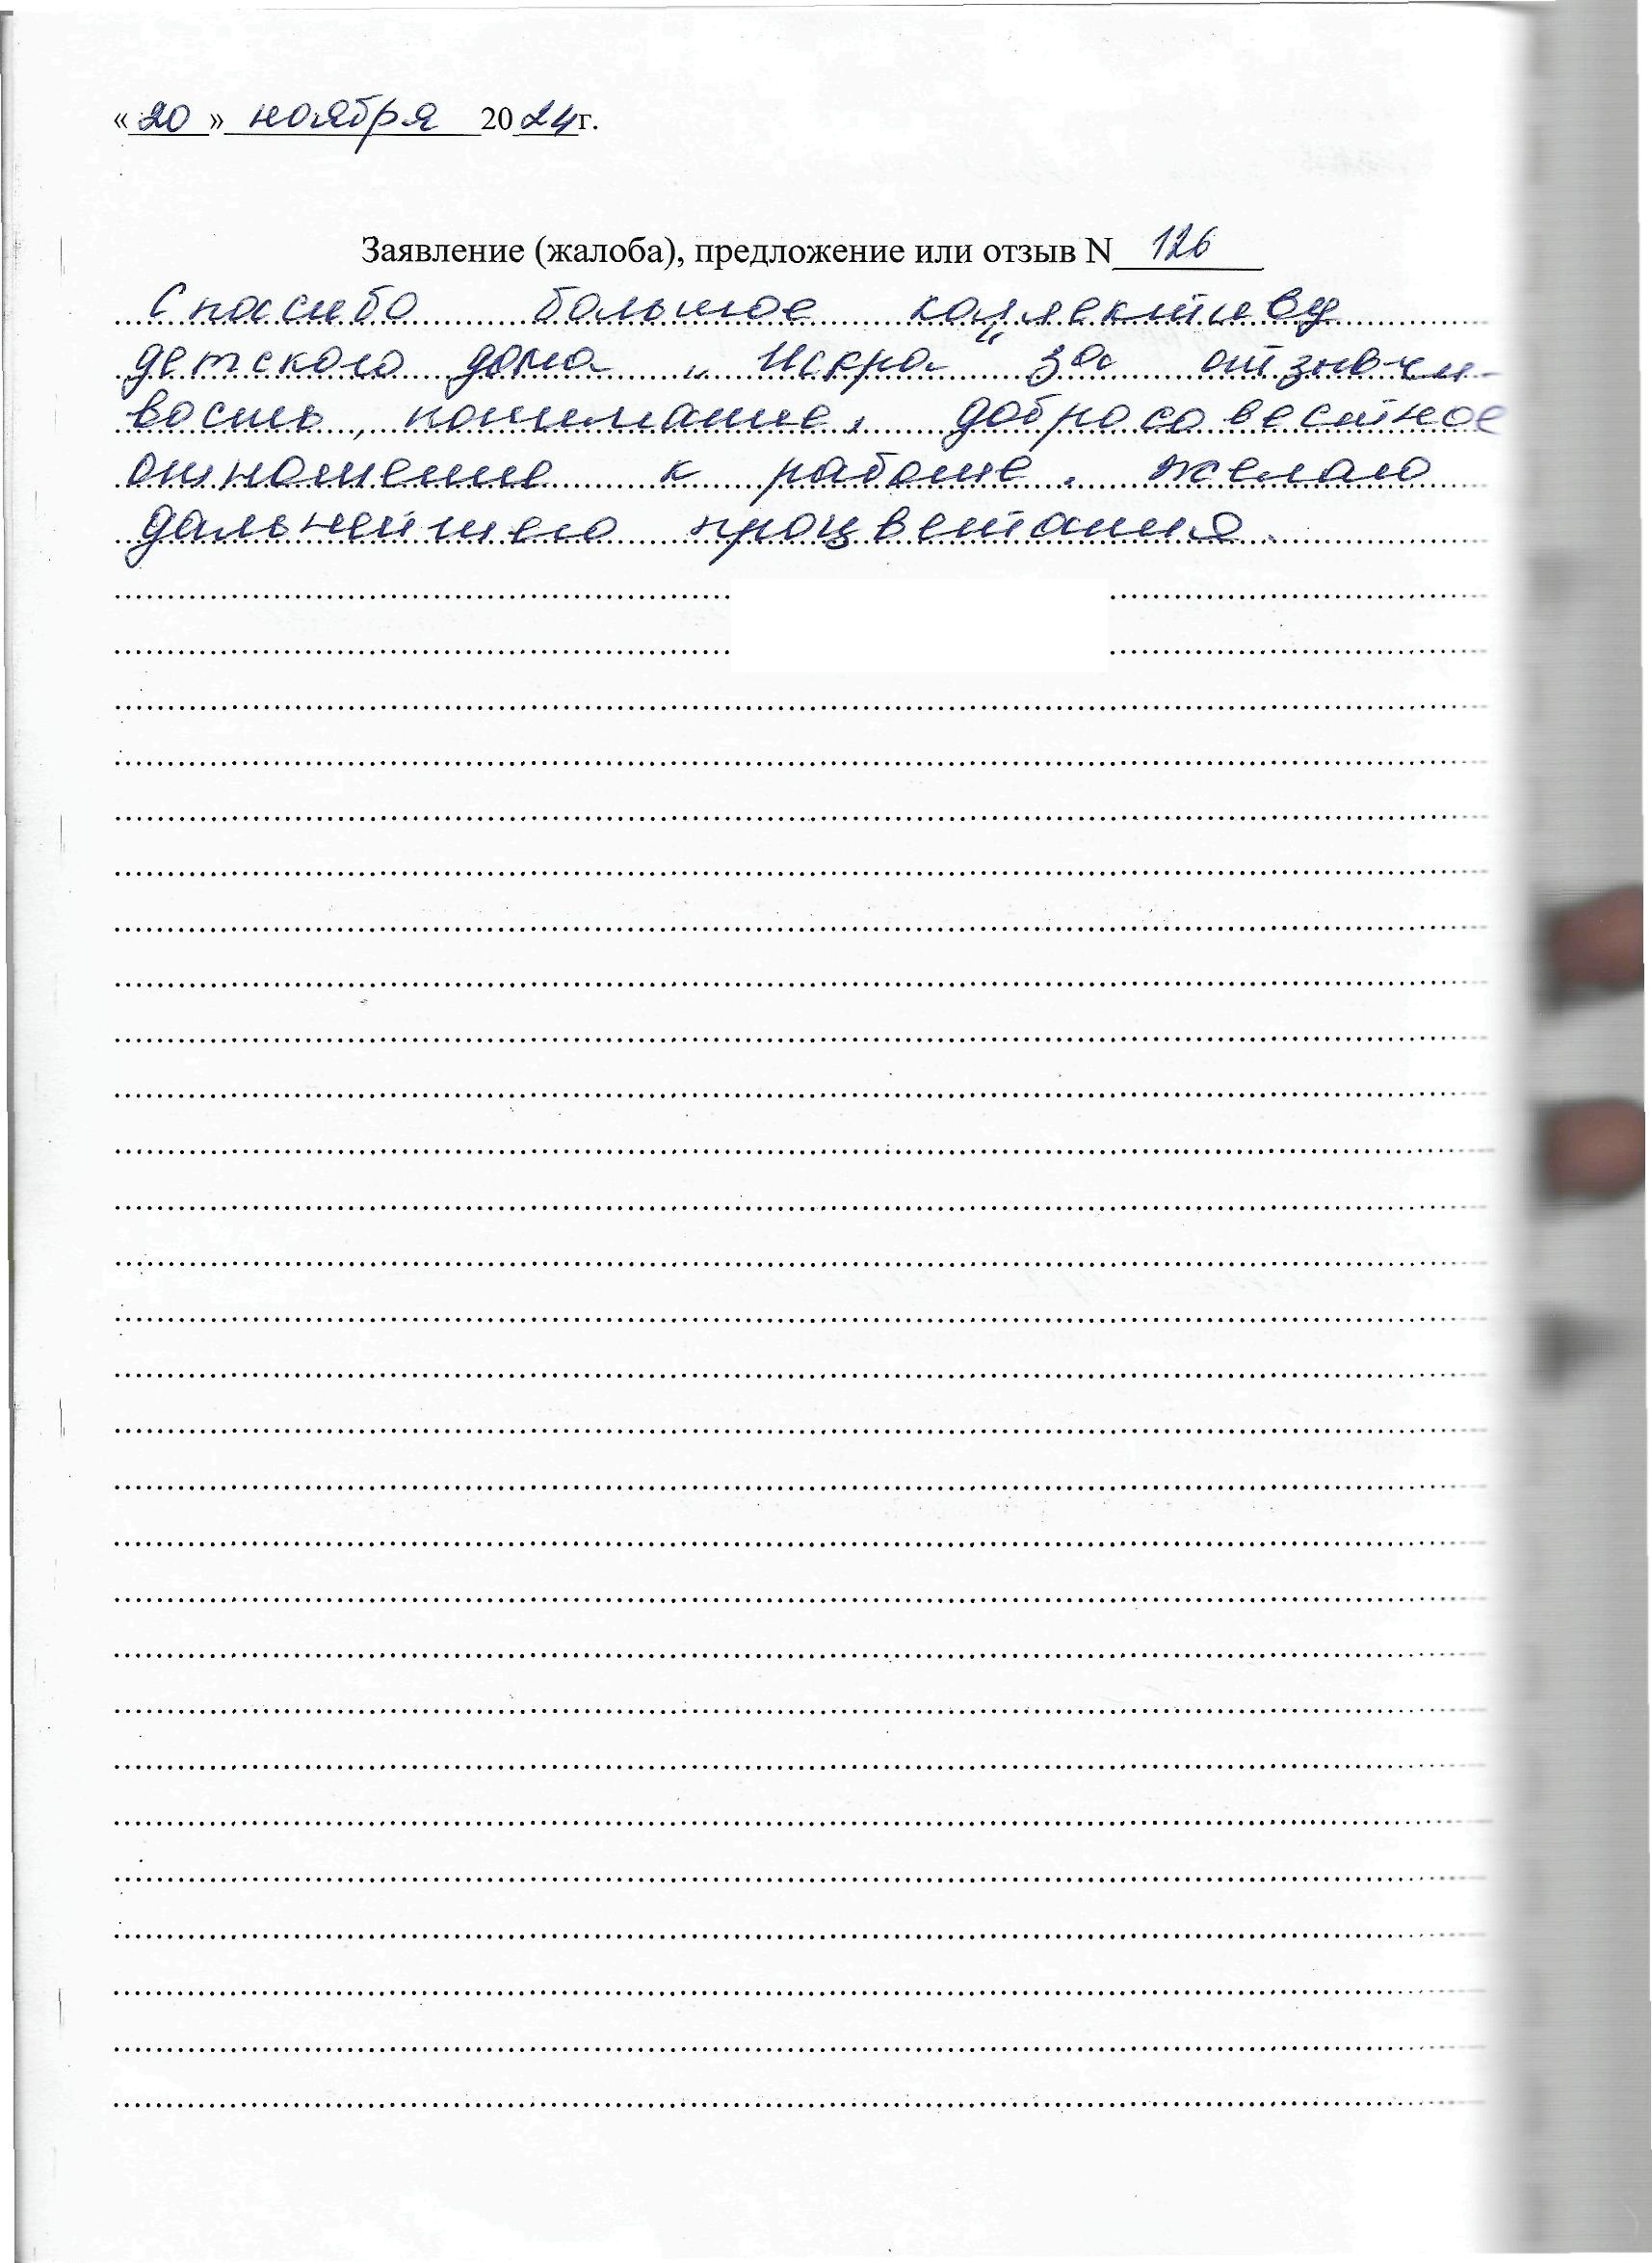 «20» ноября 2024г.
Заявление (жалоба), предложение или отзыв N 126
Спасибо большое коллективу
детского дома „Искра“ за отзывчи-
вость, понимание, добросовестное
отношение к работе. Желаю
дальнейшего процветания.